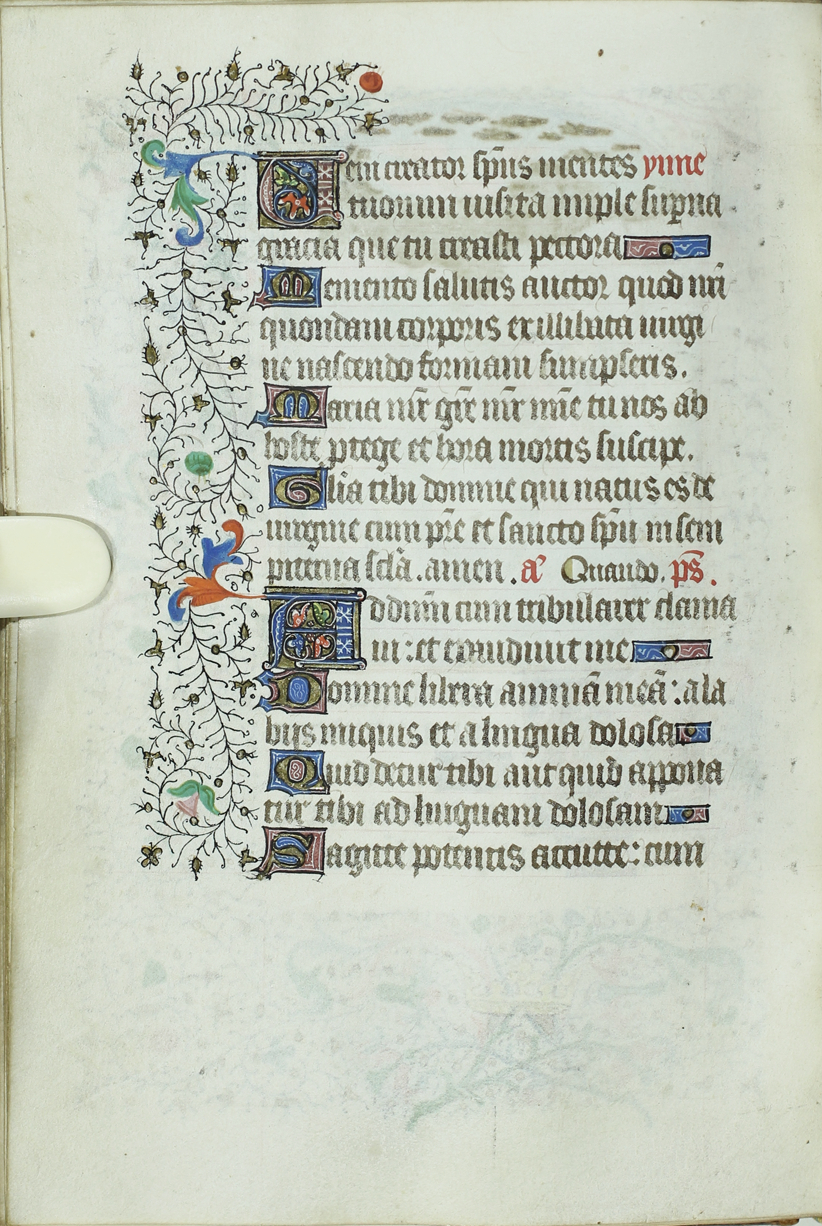 Veni creator sp̄us mentes yme
tuorum visita imple sup̄na
gracia que tu creasti pectora
Memento salutis auctor quod nr̄i
quondam corporis ex illibata virgi
ne nascendo formam sumpseris.
Maria mr̄ gr̄e mr̄ mīe tu nos ab
hoste p̄tege et hora mortis suscipe.
Glīa tibi domine qui natus es de
virgine cum pr̄e et sancto sp̄u in sem
piterna sclā. amen. aⁿ Quando. ps̄.
Ad dominū cum tribularer clama
ui: et exaudiuit me
Domine libera animā meā: a la
bijs iniquis et a lingua dolosa
Quid detur tibi aut quid appona
tur tibi ad linguam dolosam
Sagitte potentis accutte: cum